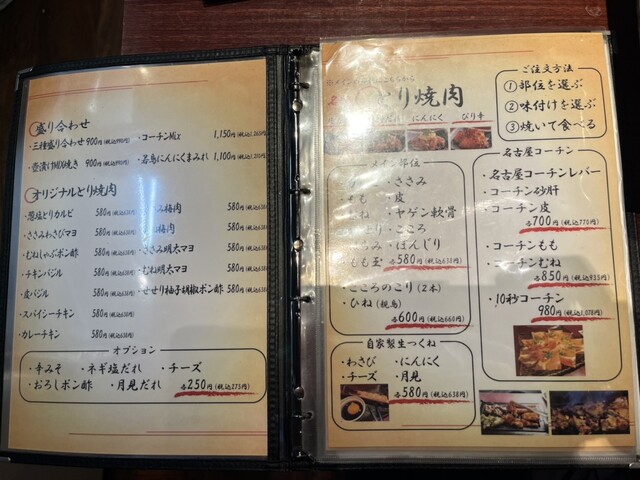 盛り合わせ
・三種盛り合わせ 900円(税込990円)
・壺漬けMIX焼き 900円(税込990円)
・コーチンMix 1,150円(税込1,265円)
・名島にんにくまみれ 1,100円(税込1,210円)
オリジナルとり焼肉
・葱塩とりカルビ 580円(税込638円)
・ささみわさびマヨ 580円(税込638円)
・むねしゃぶポン酢 580円(税込638円)
・チキンバジル 580円(税込638円)
・皮バジル 580円(税込638円)
・スパイシーチキン 580円(税込638円)
・カレーチキン 580円(税込638円)
梅肉 580円(税込638円)
梅肉 580円(税込638円)
ささみ明太マヨ 580円(税込638円)
むね明太マヨ 580円(税込638円)
・せせり柚子胡椒ポン酢 580円(税込638円)
オプション
・辛みそ ・ネギ塩だれ ・チーズ
・おろしポン酢 ・月見だれ 各250円(税込275円)
とり焼肉
にんにく ぴり辛
メイン部位
・ささみ
・皮
・ヤゲン軟骨
・こころ
・ぼんじり
各580円(税込638円)
・こころのこり(2本)
・ひね(親鳥)
各600円(税込660円)
自家製生つくね
・わさび ・にんにく
・チーズ ・月見
各580円(税込638円)
ご注文方法
①部位を選ぶ
②味付けを選ぶ
③焼いて食べる
名古屋コーチン
・名古屋コーチンレバー
・コーチン砂肝
・コーチン皮
各700円(税込770円)
・コーチンもも
・コーチンむね
各850円(税込935円)
・10秒コーチン
980円(税込1,078円)